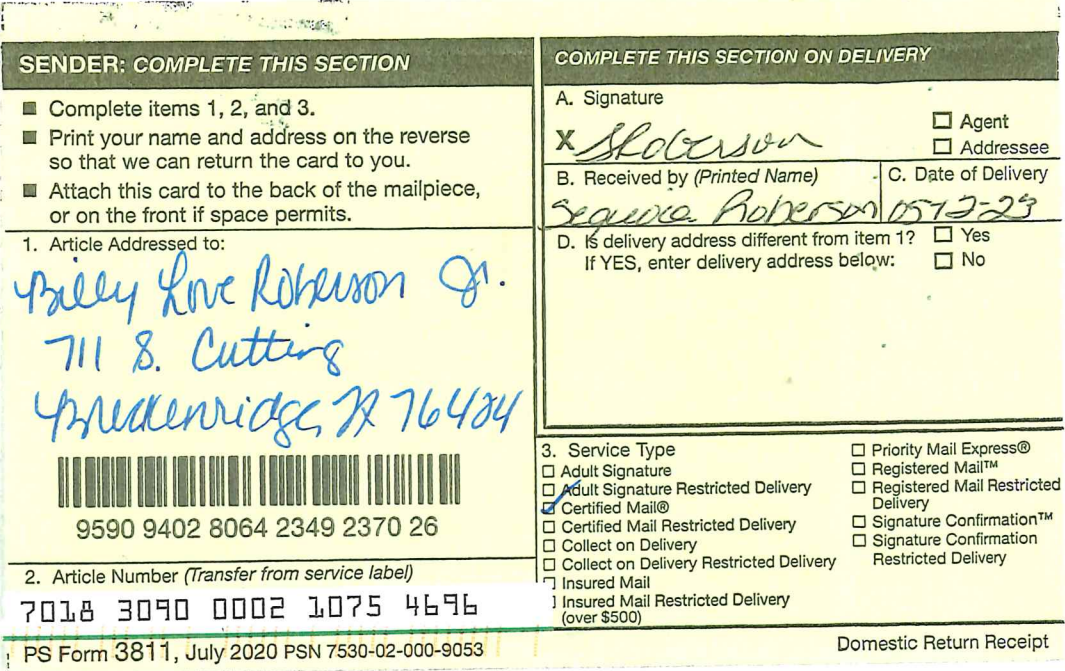 SENDER: COMPLETE THIS SECTION
■ Complete items 1, 2, and 3.
■ Print your name and address on the reverse
so that we can return the card to you.
■ Attach this card to the back of the mailpiece,
or on the front if space permits.
1. Article Addressed to:
Billy Love Roberson Jr.
711 S. Cutting
Breckenridge, TX 76424
9590 9402 8064 2349 2370 26
2. Article Number (Transfer from service label)
7018 3090 0002 1075 4696
PS Form 3811, July 2020 PSN 7530-02-000-9053
COMPLETE THIS SECTION ON DELIVERY
A. Signature
X SRoberson
☐ Agent
☐ Addressee
B. Received by (Printed Name)
Sequoia Roberson
C. Date of Delivery
05-12-23
D. Is delivery address different from item 1? ☐ Yes
If YES, enter delivery address below: ☐ No
3. Service Type
☐ Adult Signature
☐ Adult Signature Restricted Delivery
☑ Certified Mail®
☐ Certified Mail Restricted Delivery
☐ Collect on Delivery
☐ Collect on Delivery Restricted Delivery
☐ Insured Mail
☐ Insured Mail Restricted Delivery
(over $500)
☐ Priority Mail Express®
☐ Registered Mail™
☐ Registered Mail Restricted
Delivery
☐ Signature Confirmation™
☐ Signature Confirmation
Restricted Delivery
Domestic Return Receipt